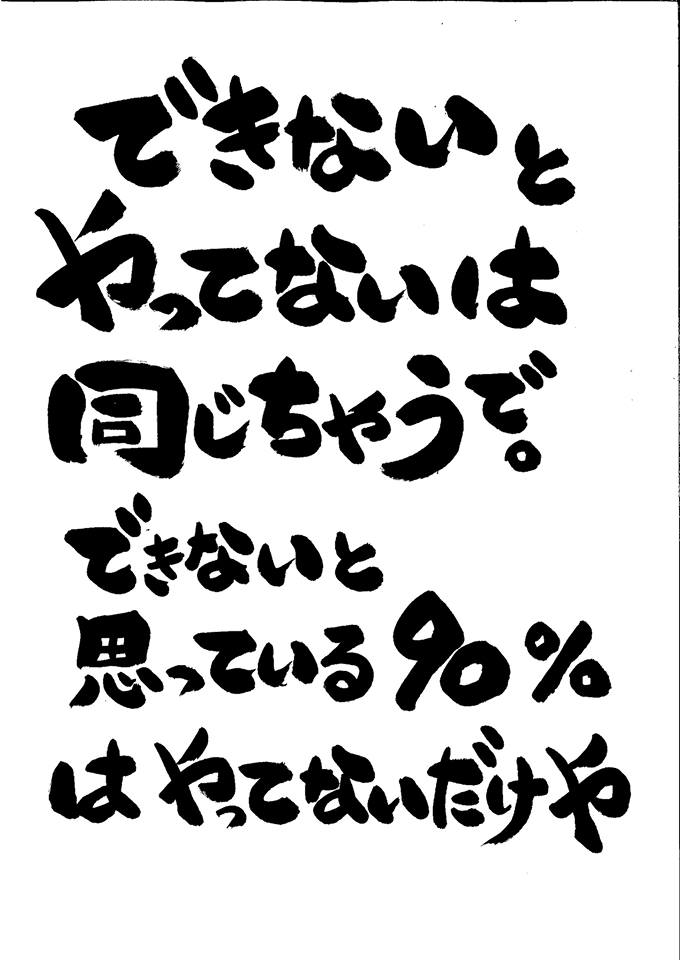 できないと
やってないは
同じちゃうで。
できないと
思っている90%
はやってないだけや